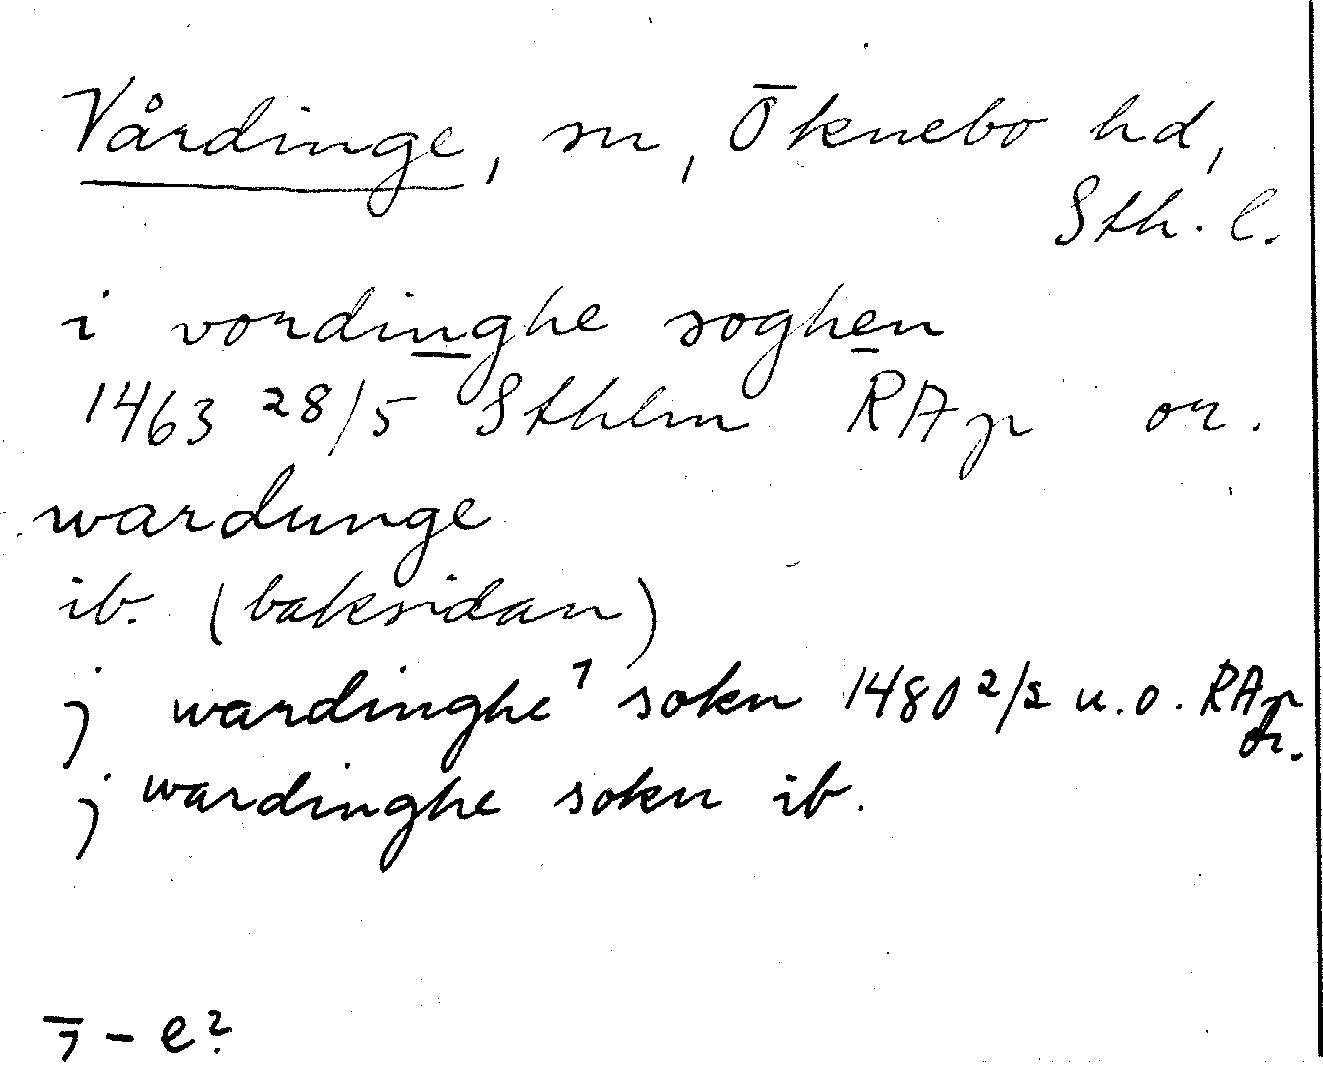 Vårdinge, sn, Öknebo hd,
Sth. l.
i vordinghe soghen
1463 28/5 Sthlm RAp or.
wardunge
ib. (baksidan)
j wardinghe⁷ sokn 1480 2/2 u.o. RAp
or.
j wardinghe sokn ib.
7 - e?